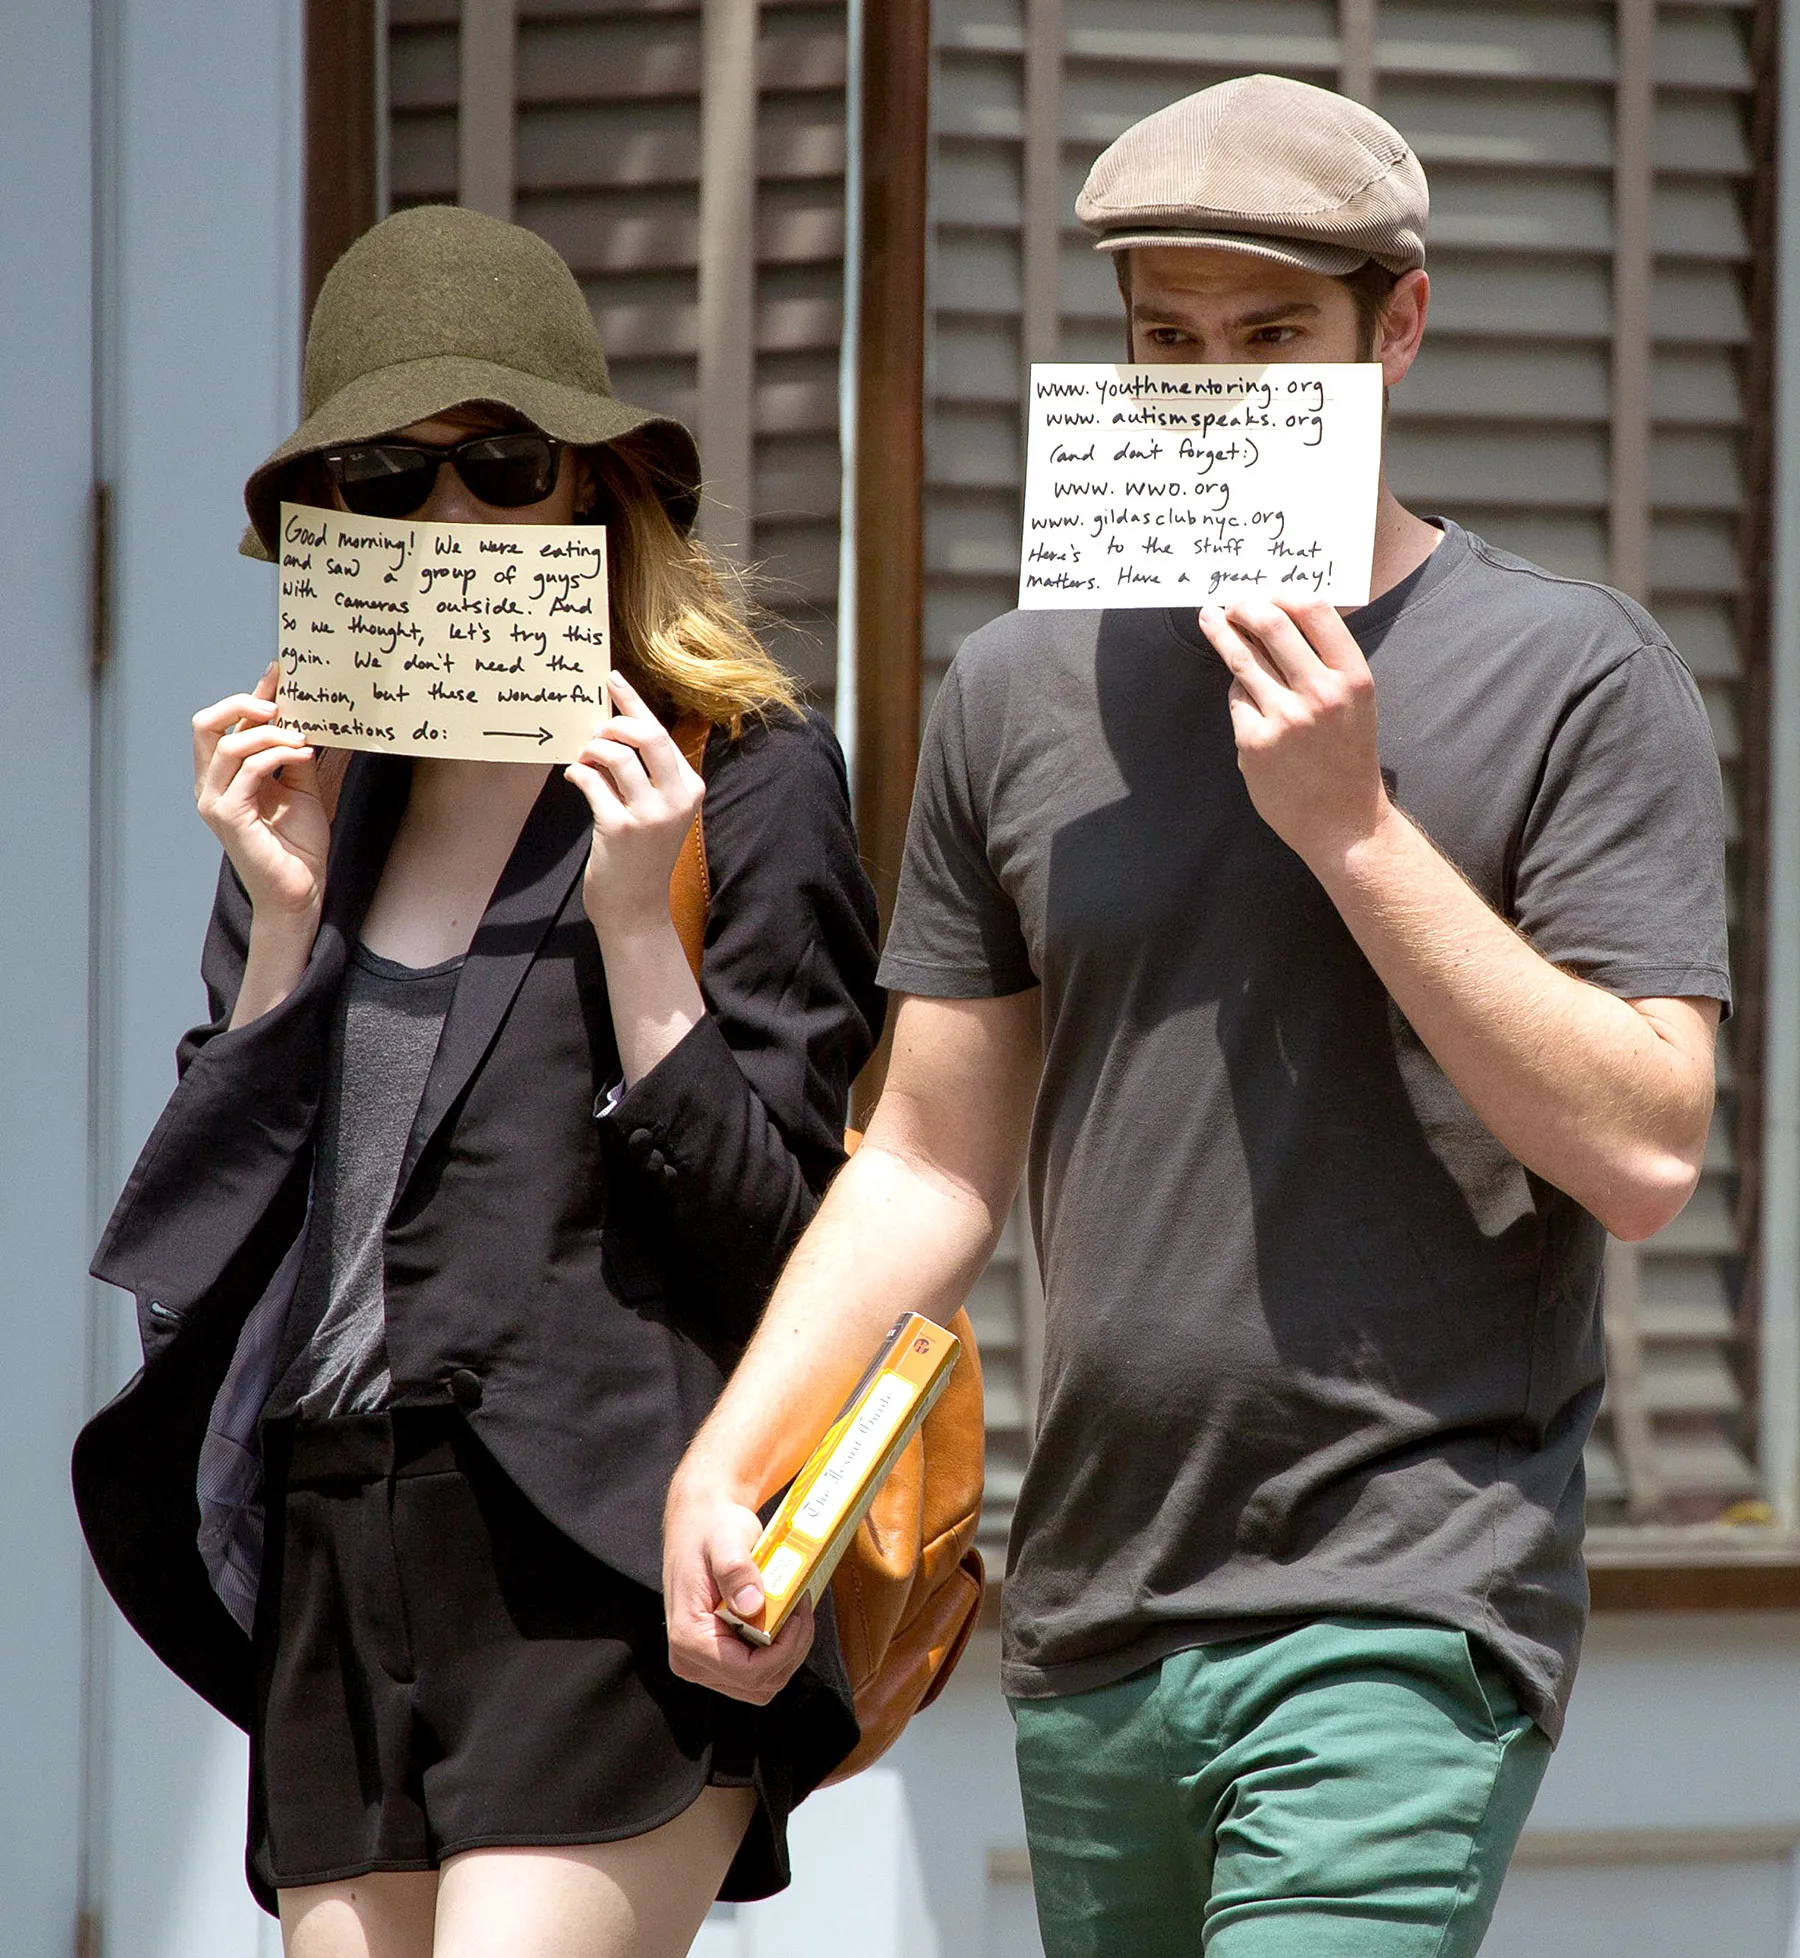 Good morning! We were eating
and saw a group of guys
with cameras outside. And
so we thought, let's try this
again. We don't need the
attention, but these wonderful
organizations do: →
www.youthmentoring.org
www.autismspeaks.org
(and don't forget:)
www.wwo.org
www.gildasclubnyc.org
Here's to the stuff that
matters. Have a great day!
Ray-Ban
The